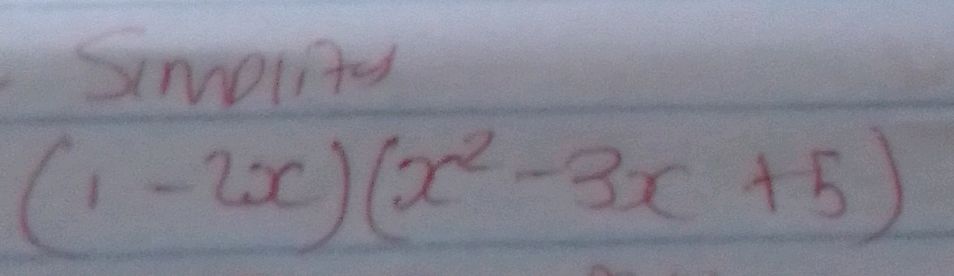 Simplify
(1 - 2x)(x² - 3x + 5)